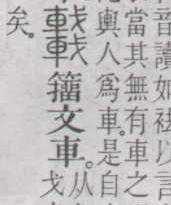 音讀如袪以言
當其無有車之
輿人爲車。是自
矣。
𨏖籒文車。
从
戈